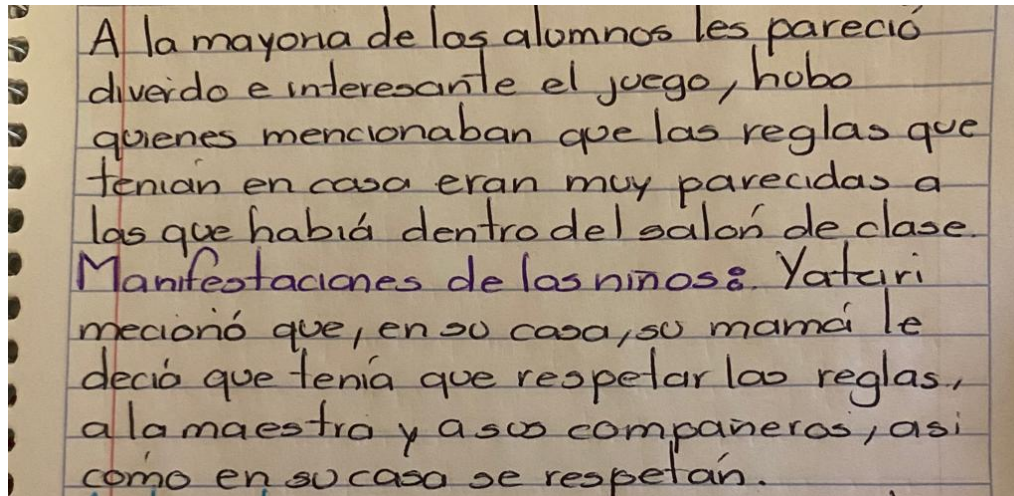 A la mayoria de los alumnos les pareció
diverido e interesante el juego, hubo
quienes mencionaban que las reglas que
tenían en casa eran muy parecidas a
las que habiá dentro del salón de clase.
Manifestaciones de los niños: Yatziri
mecionó que, en su casa, su mamá le
deciá que tenía que respetar las reglas,
a la maestra y a sus compañeros, asi
como en su casa se respetan.